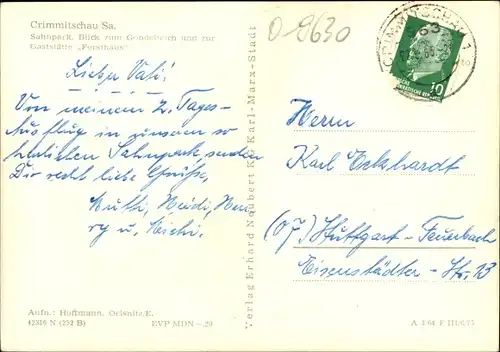 Crimmitschau Sa.
Sahnpark. Blick zum Gondelteich und zur
Gaststätte „Forsthaus"
O-9630
CRIMMITSCHAU 1
963
10
Lieber Vati!
Von meinem 2. Tages-
Ausflug in unsern so
herrlichen Sahnpark, senden
Dir recht liebe Grüße,
Mutti, Heidi,
ry u. Michi.
Herrn
Karl Eckhardt
(07) Stuttgart - Feuerbach
Eisenstädter - Str. 23
Verlag Erhard Neubert KG Karl-Marx-Stadt
Aufn.: Hoffmann, Oelsnitz/E.
42346 N (252 B) EVP MDN -.20
A 1/64 F III/6/73